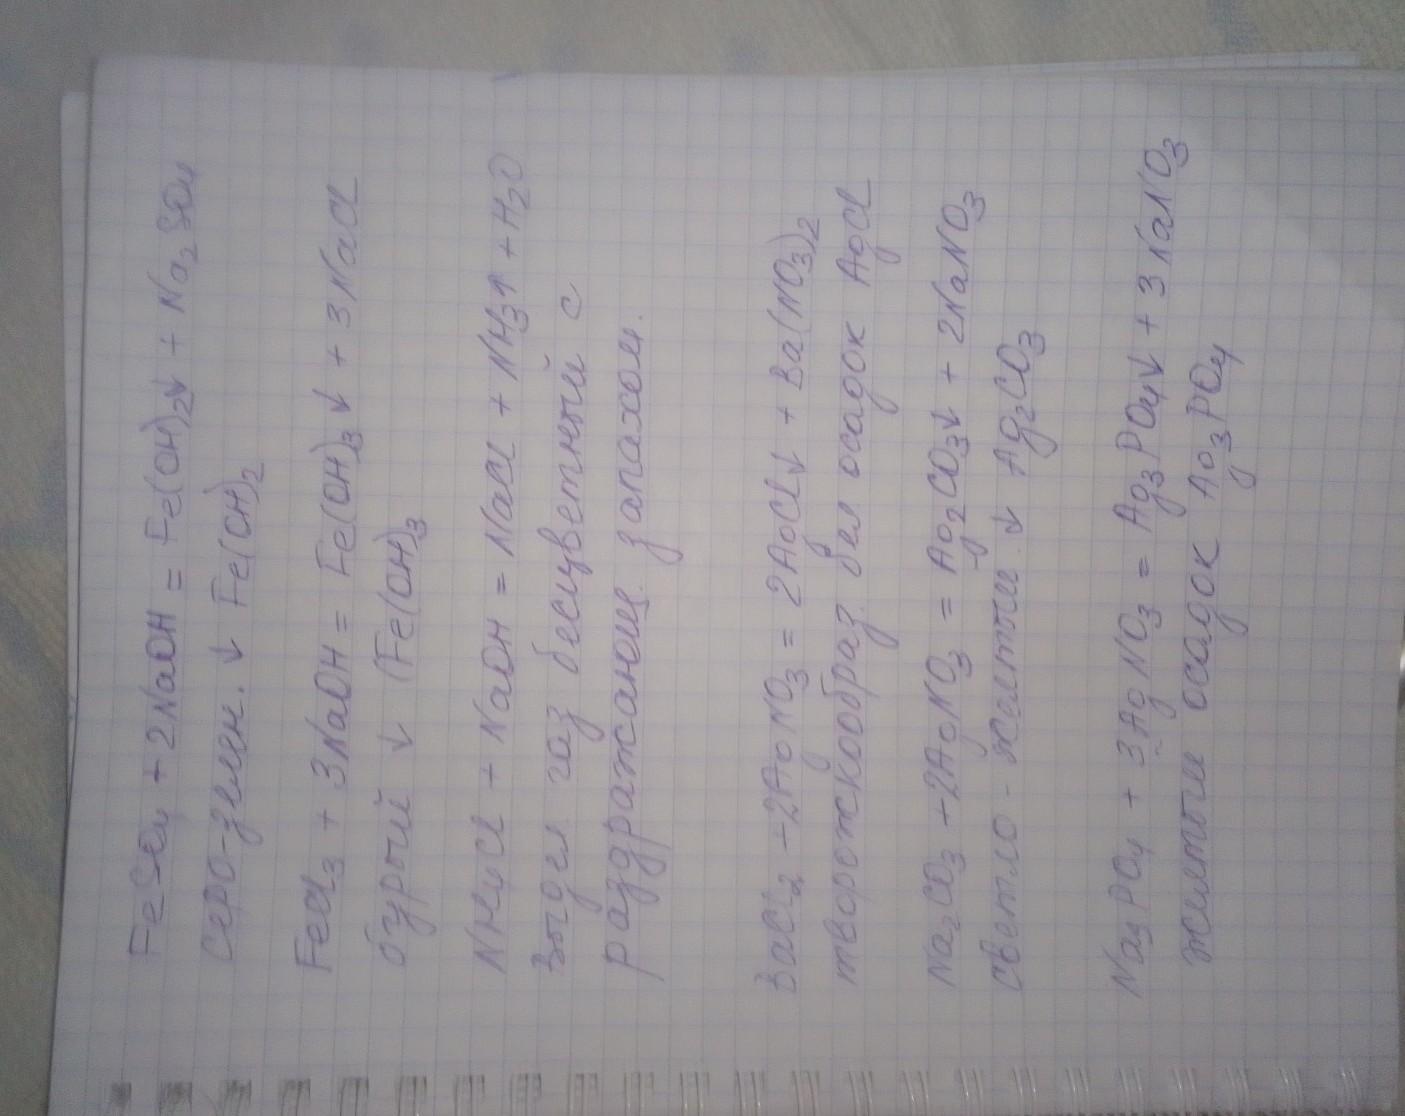 FeSO₄ + 2NaOH = Fe(OH)₂↓ + Na₂SO₄
серо-зелен. ↓ Fe(OH)₂
FeCl₃ + 3NaOH = Fe(OH)₃↓ + 3NaCl
бурый ↓ (Fe(OH)₃
NH₄Cl + NaOH = NaCl + NH₃↑ + H₂O
Выдел газ бесцветный с
раздражающ. запахом.
BaCl₂ + 2AgNO₃ = 2AgCl↓ + Ba(NO₃)₂
творожкообраз. бел осадок AgCl
Na₂CO₃ + 2AgNO₃ = Ag₂CO₃↓ + 2NaNO₃
светло - желтый ↓ Ag₂CO₃
Na₃PO₄ + 3AgNO₃ = Ag₃PO₄↓ + 3NaNO₃
желтый осадок Ag₃PO₄